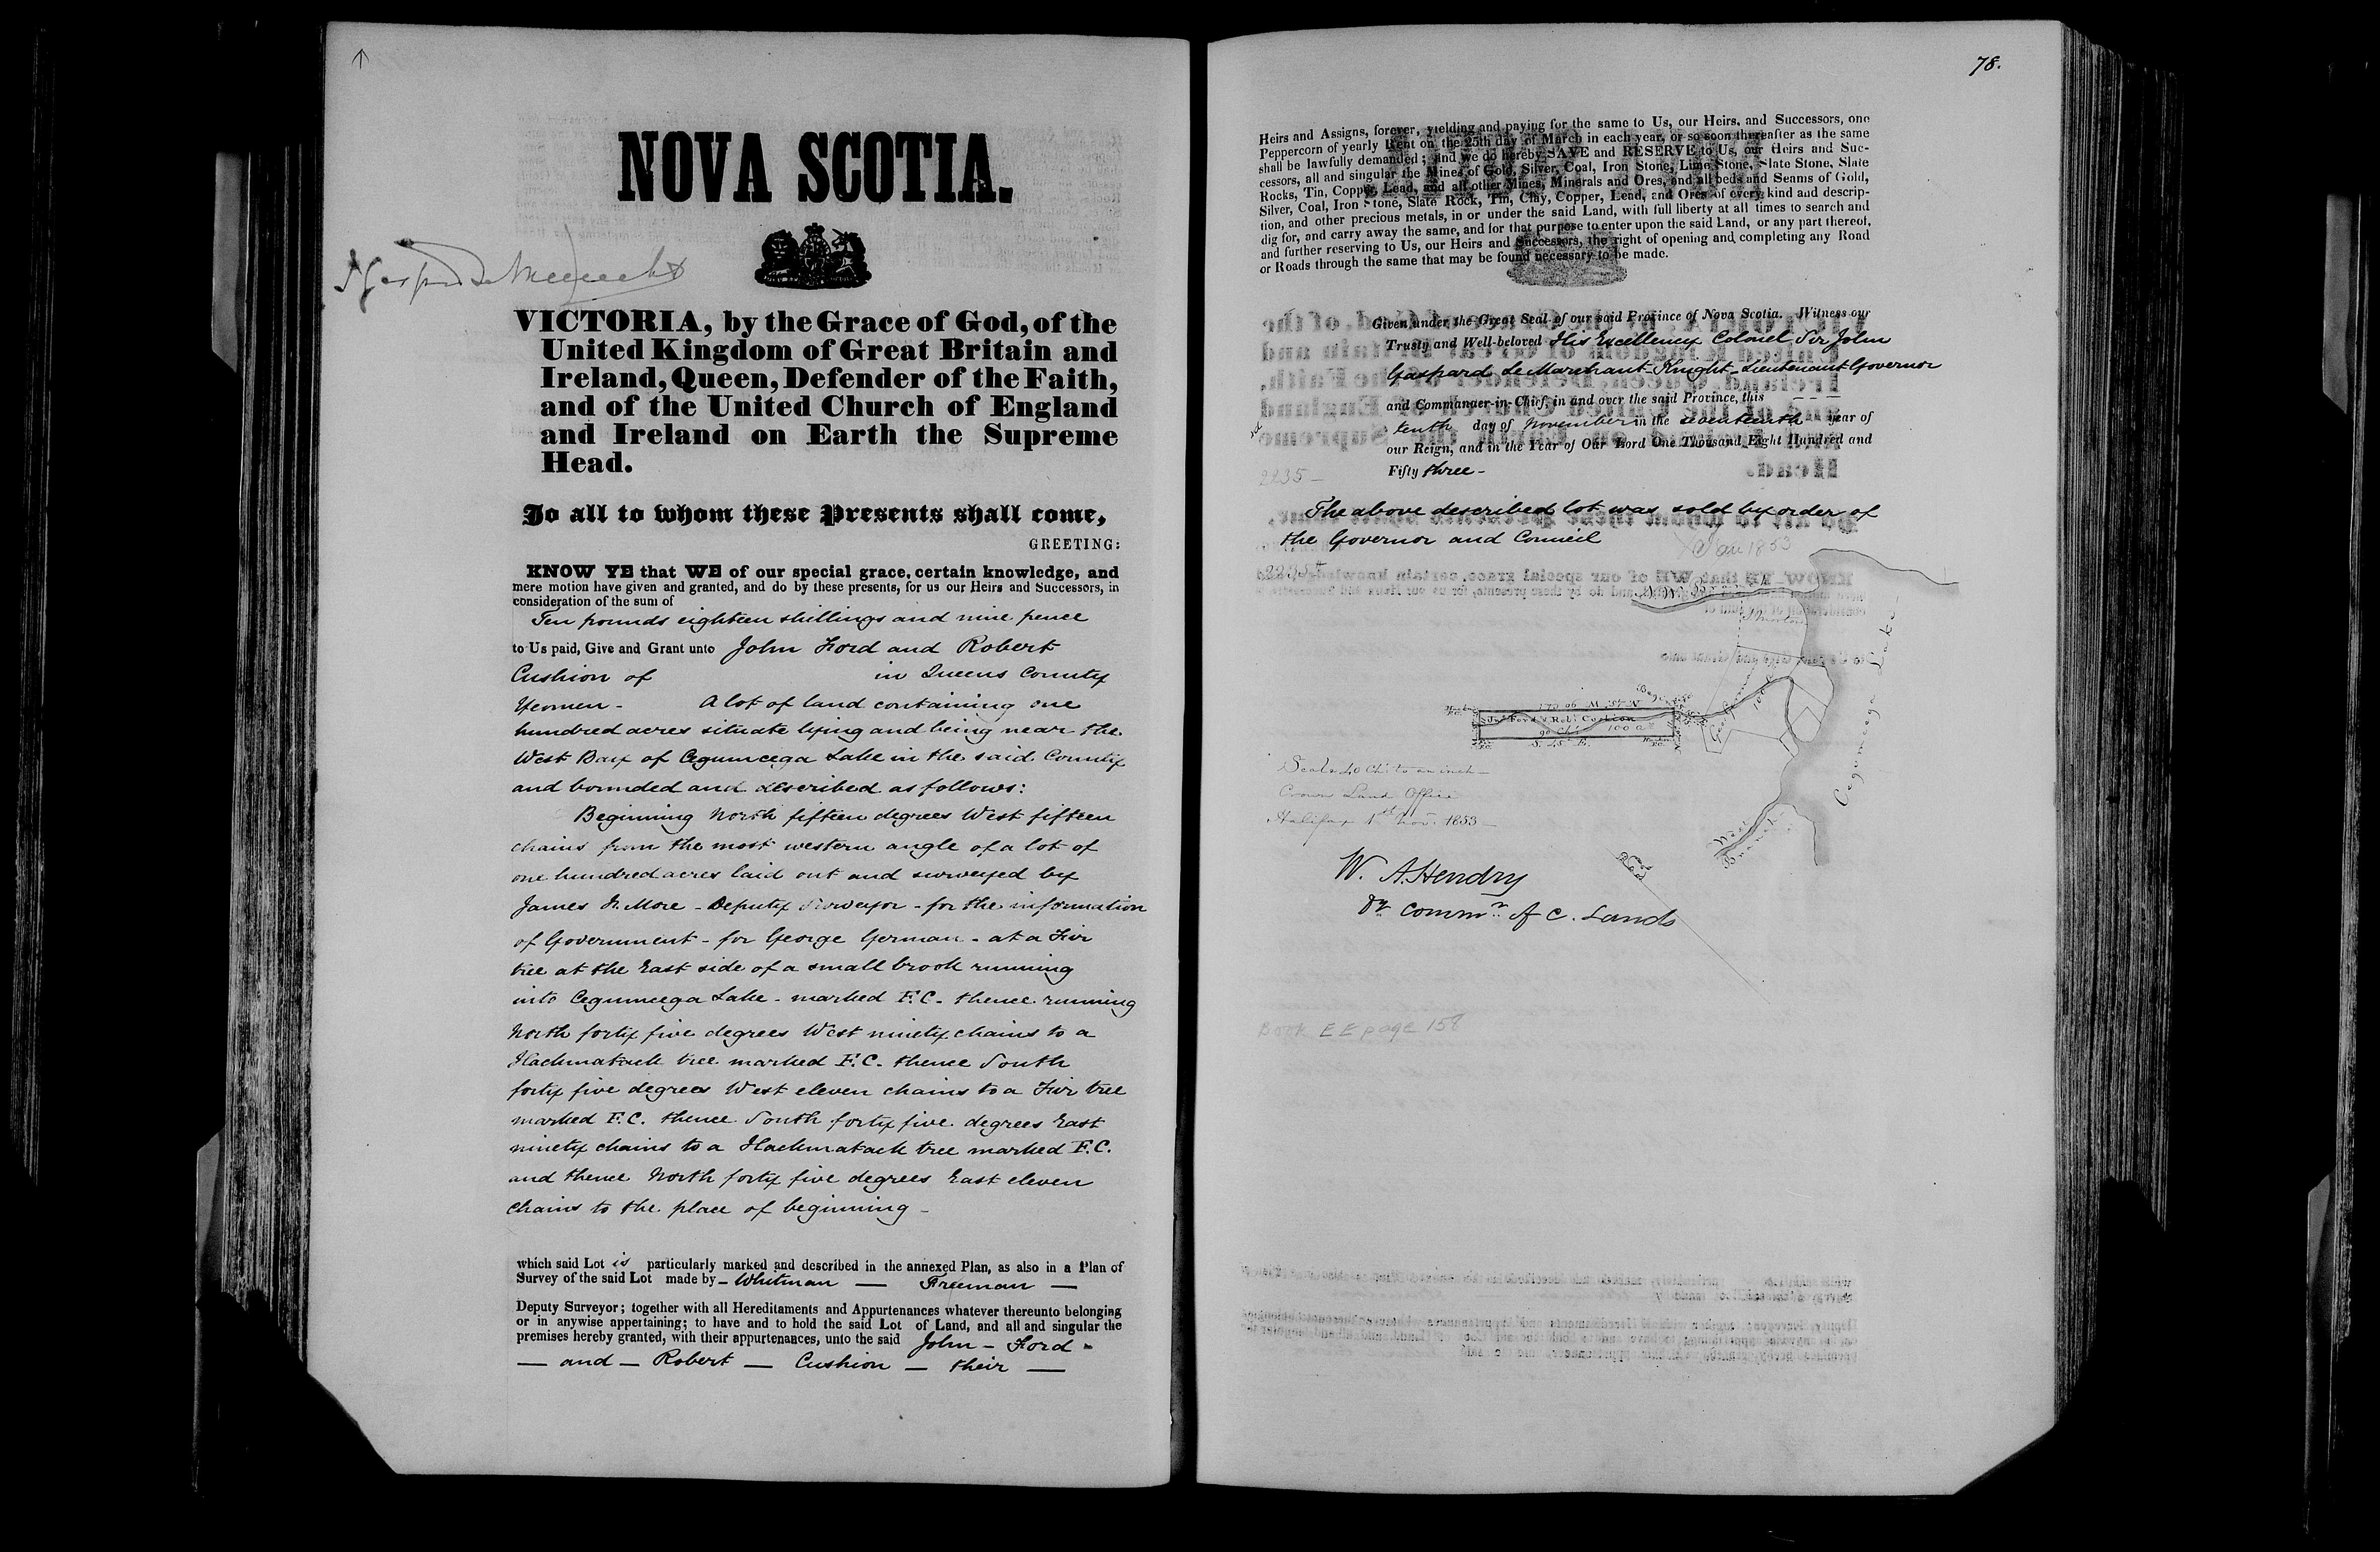 NOVA SCOTIA.
VICTORIA, by the Grace of God, of the
United Kingdom of Great Britain and
Ireland, Queen, Defender of the Faith,
and of the United Church of England
and Ireland on Earth the Supreme
Head.
To all to whom these Presents shall come,
GREETING:
KNOW YE that WE of our special grace, certain knowledge, and
mere motion have given and granted, and do by these presents, for us our Heirs and Successors, in
consideration of the sum of
Ten pounds eighteen shillings and nine pence
to Us paid, Give and Grant unto John Ford and Robert
Cushion of in Queens County
Yeomen - A lot of land containing one
hundred acres situate lying and being near the
West Bay of Cegumcega Lake in the said County
and bounded and described as follows:
Beginning North fifteen degrees West fifteen
chains from the most western angle of a lot of
one hundred acres laid out and surveyed by
James R. More - Deputy Surveyor - for the information
of Government - for George German - at a Fir
tree at the East side of a small brook running
into Cegumcega Lake - marked F.C. thence running
North forty five degrees West ninety chains to a
Hackmatack tree marked F.C. thence South
forty five degrees West eleven chains to a Fir tree
marked F.C. thence South forty five degrees East
ninety chains to a Hackmatack tree marked F.C.
and thence North forty five degrees East eleven
chains to the place of beginning -
which said Lot is particularly marked and described in the annexed Plan, as also in a Plan of
Survey of the said Lot made by - Whitman — Freeman —
Deputy Surveyor; together with all Hereditaments and Appurtenances whatever thereunto belonging
or in anywise appertaining; to have and to hold the said Lot of Land, and all and singular the
premises hereby granted, with their appurtenances, unto the said John - Ford -
— and — Robert — Cushion — their —
78.
Heirs and Assigns, forever, yielding and paying for the same to Us, our Heirs, and Successors, one
Peppercorn of yearly Rent on the 25th day of March in each year, or so soon thereafter as the same
shall be lawfully demanded; and we do hereby SAVE and RESERVE to Us, our Heirs and Suc-
cessors, all and singular the Mines of Gold, Silver, Coal, Iron Stone, Lime Stone, Slate Stone, Slate
Rocks, Tin, Copper, Lead, and all other Mines, Minerals and Ores, and all beds and Seams of Gold,
Silver, Coal, Iron Stone, Slate Rock, Tin, Clay, Copper, Lead, and Ores of every kind and descrip-
tion, and other precious metals, in or under the said Land, with full liberty at all times to search and
dig for, and carry away the same, and for that purpose to enter upon the said Land, or any part thereof,
and further reserving to Us, our Heirs and Successors, the right of opening and completing any Road
or Roads through the same that may be found necessary to be made.
Given under the Great Seal of our said Province of Nova Scotia. Witness our
Trusty and Well-beloved His Excellency Colonel Sir John
Gaspard Le Marchant Knight Lieutenant Governor
and Commander-in-Chief, in and over the said Province, this
tenth day of November in the seventeenth year of
our Reign, and in the Year of Our Lord One Thousand Eight Hundred and
Fifty three -
2235 -
The above described lot was sold by order of
the Governor and Council
Jan 1853
2235
N. 45° W. 90 Chs
Jno Ford & Robt Cushion
90 Chs 100 a
S. 45° E.
Cegumcega Lake
West
Branch
Scale 40 Chs to an inch -
Crown Land Office
Halifax 1st Nov. 1853 -
W. A. Hendry
Dy Commr of C. Lands
Book EE page 158